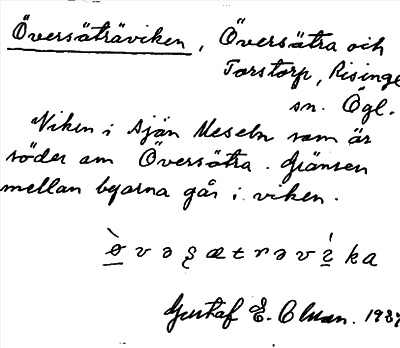 Översäträviken, Översätra och
Torstorp, Risinge
sn. Ögl.
Viken i sjön som är
söder om Översätra. Gränsen
mellan byarna går i viken.
Gustaf E. Olsson. 193